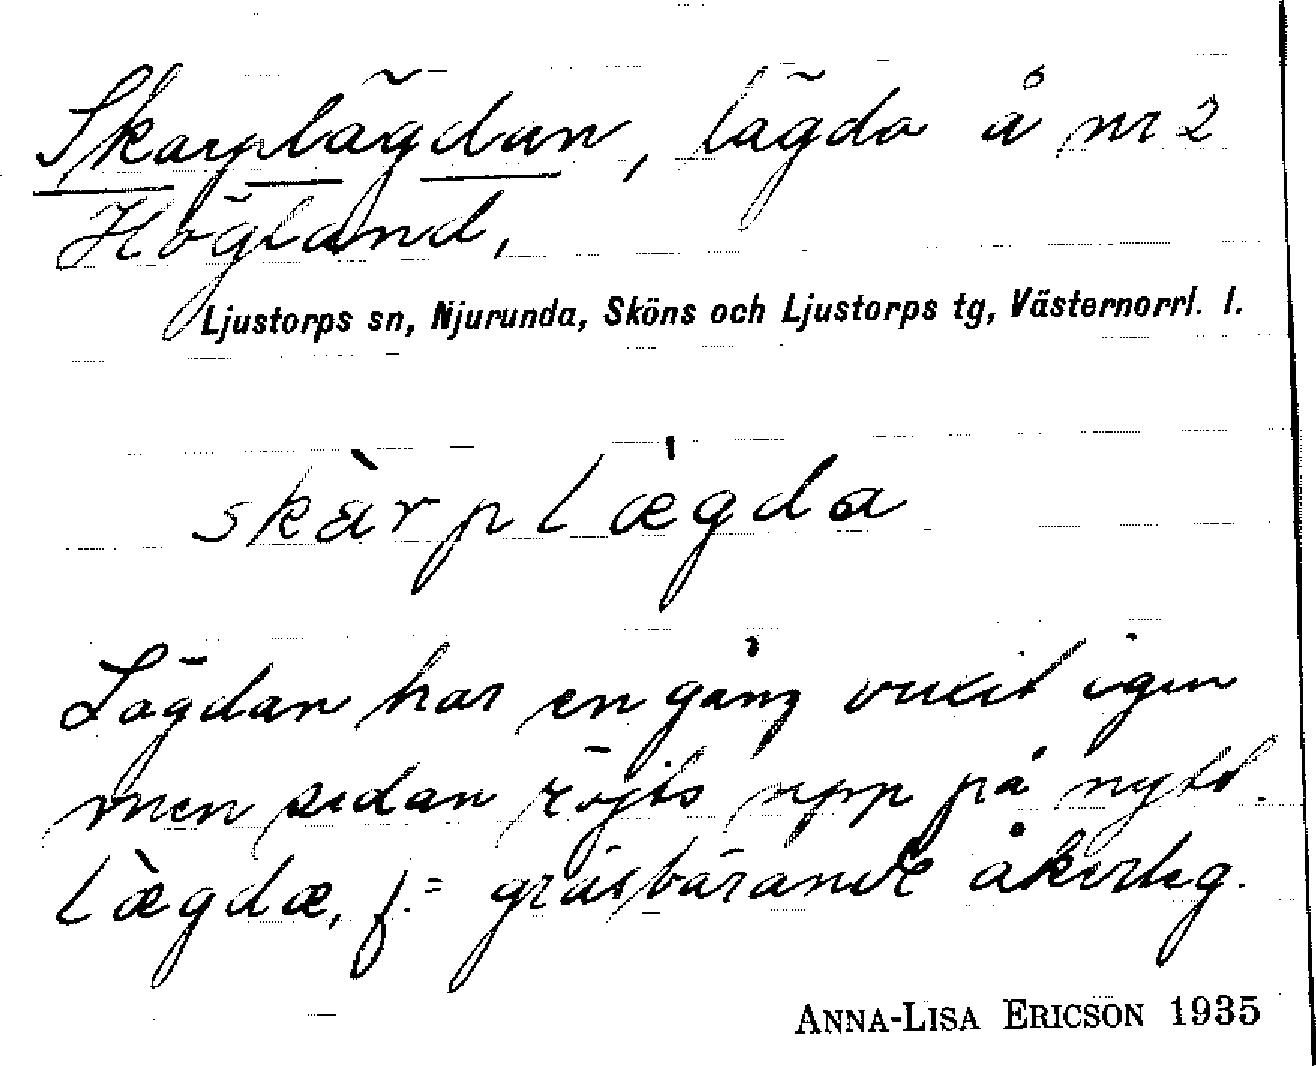 Skarplägdan, lägda å nr 2
Högland,
Ljustorps sn, Njurunda, Sköns och Ljustorps tg, Västernorrl. l.
skàrplægda
Lägdan har en gång vuxit igen
men sedan röjts upp på nytt.
lægdæ, f. = gräsbärande åkerteg.
ANNA-LISA ERICSON 1935